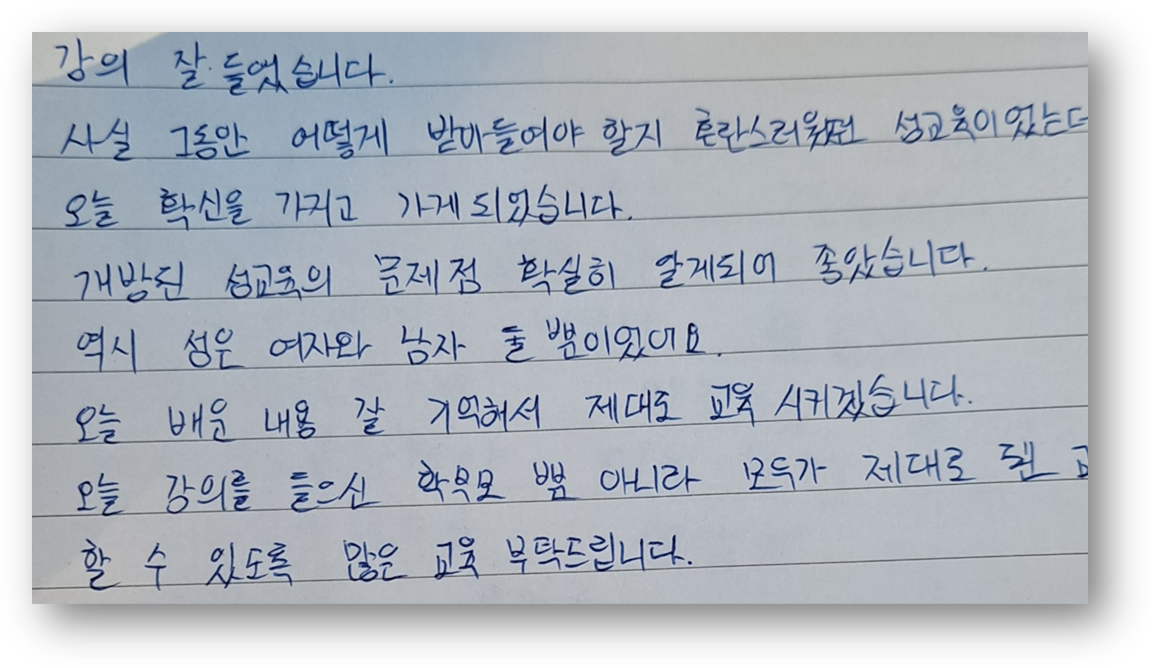 강의 잘 들었습니다.
사실 그동안 어떻게 받아들여야 할지 혼란스러웠던 성교육이었는데
오늘 확신을 가지고 가게 되었습니다.
개방된 성교육의 문제점 확실히 알게되어 좋았습니다.
역시 성은 여자와 남자 둘 뿐이었어요.
오늘 배운 내용 잘 기억해서 제대로 교육 시키겠습니다.
오늘 강의를 들으신 학부모 뿐 아니라 모두가 제대로 된
할 수 있도록 많은 교육 부탁드립니다.